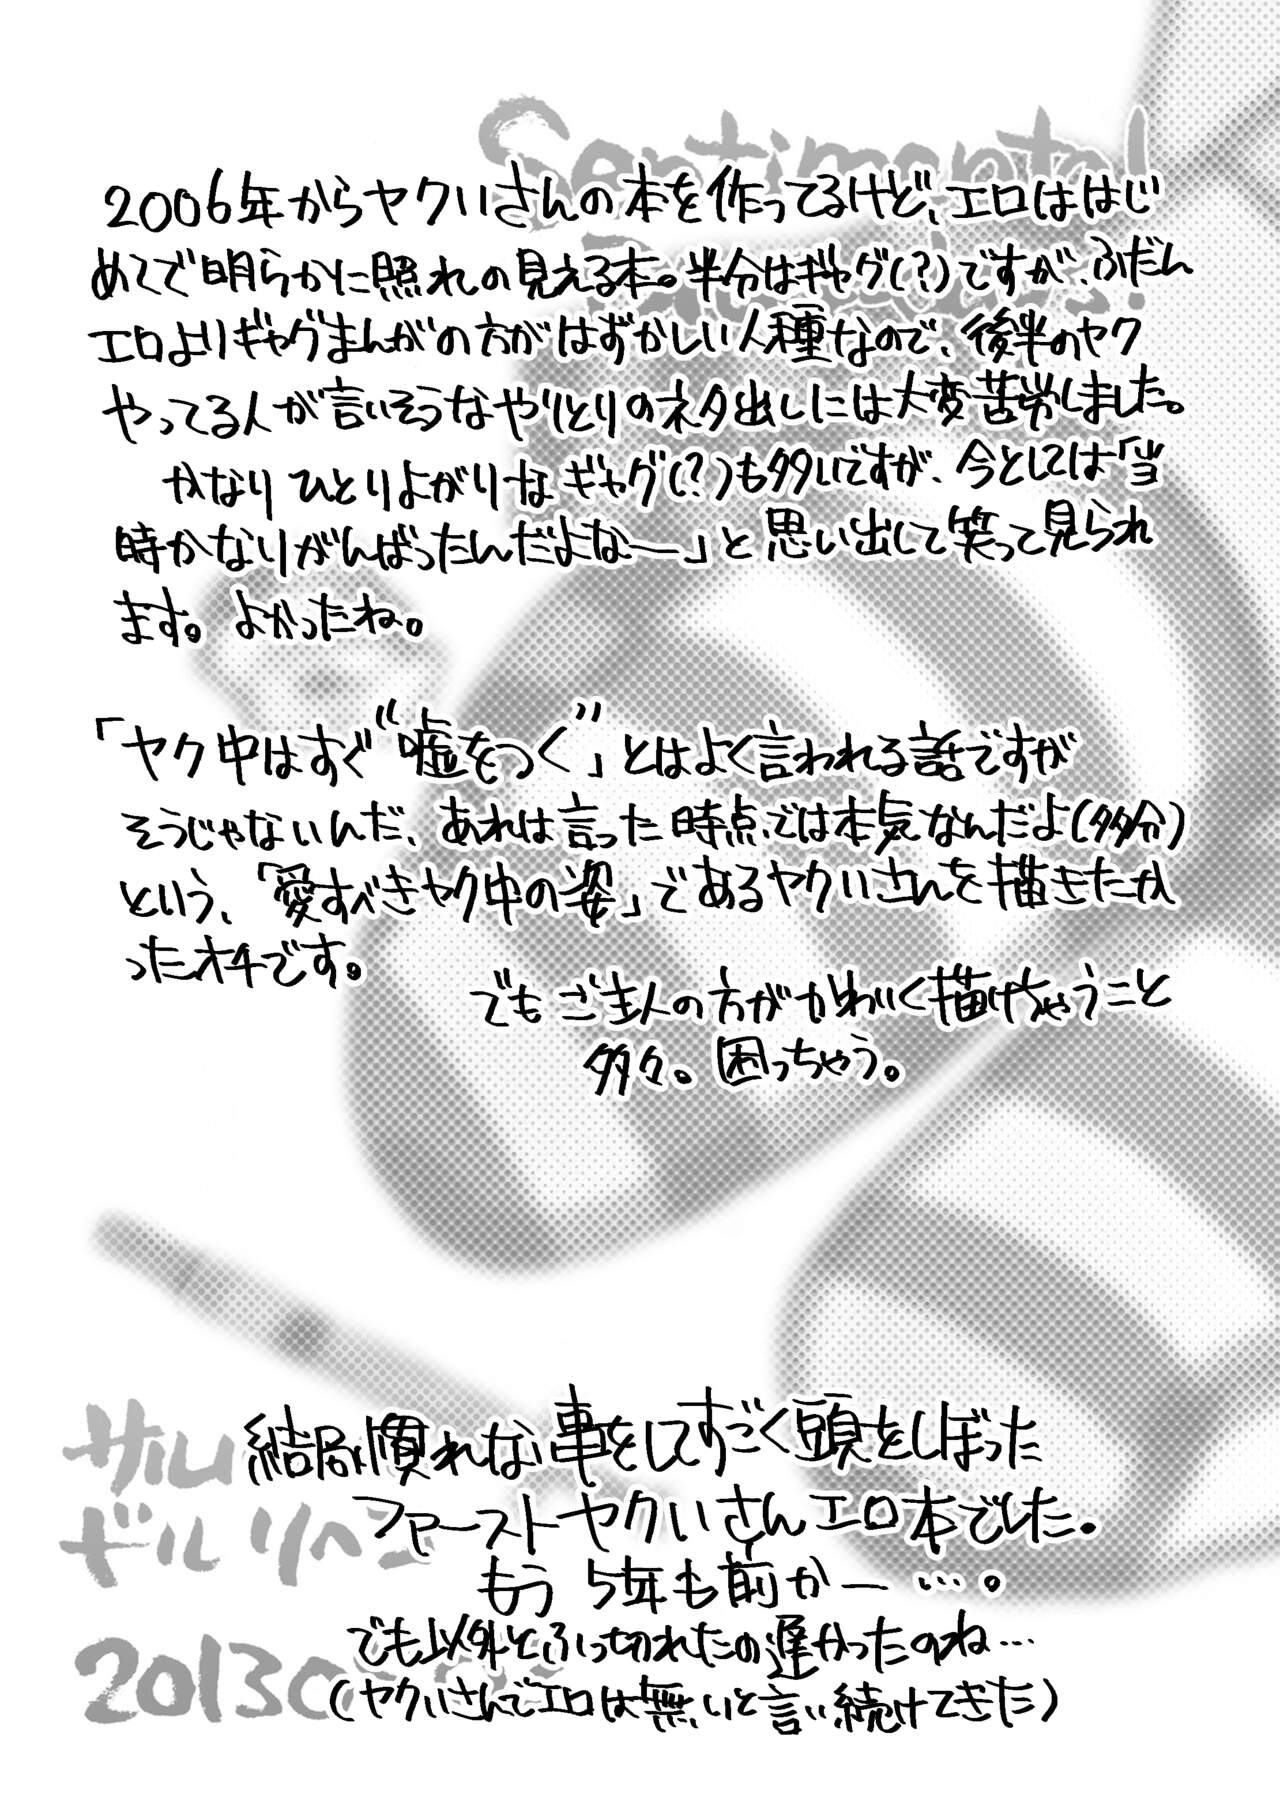 Sentimental
2006年からヤクいさんの本を作ってるけど、エロははじ
めてで明らかに照れの見える本。半分はギャグ(?)ですが、ふだん
エロよりギャグまんがの方がはずかしい人種なので、後半のヤク
やってる人が言いそうなやりとりのネタ出しには大変苦労しました。
かなりひとりよがりなギャグ(?)も多いですが、今としては「当
時かなりがんばったんだよなー」と思い出して笑って見られ
ます。よかったね。
「ヤク中はすぐ“嘘をつく”」とはよく言われる話ですが
そうじゃないんだ、あれは言った時点では本気なんだよ(多分)
という、「愛すべきヤク中の姿」であるヤクいさんを描きたか
ったオチです。
でもご主人の方がかわいく描けちゃうこと
多々。困っちゃう。
サルル
ギルリヘン
結局慣れない事をしてすごく頭をしぼった
ファーストヤクいさんエロ本でした。
もう5年も前かー…。
でも以外とふっ切れたの遅かったのね…
(ヤクいさんでエロは無いと言い続けてきた)
2013